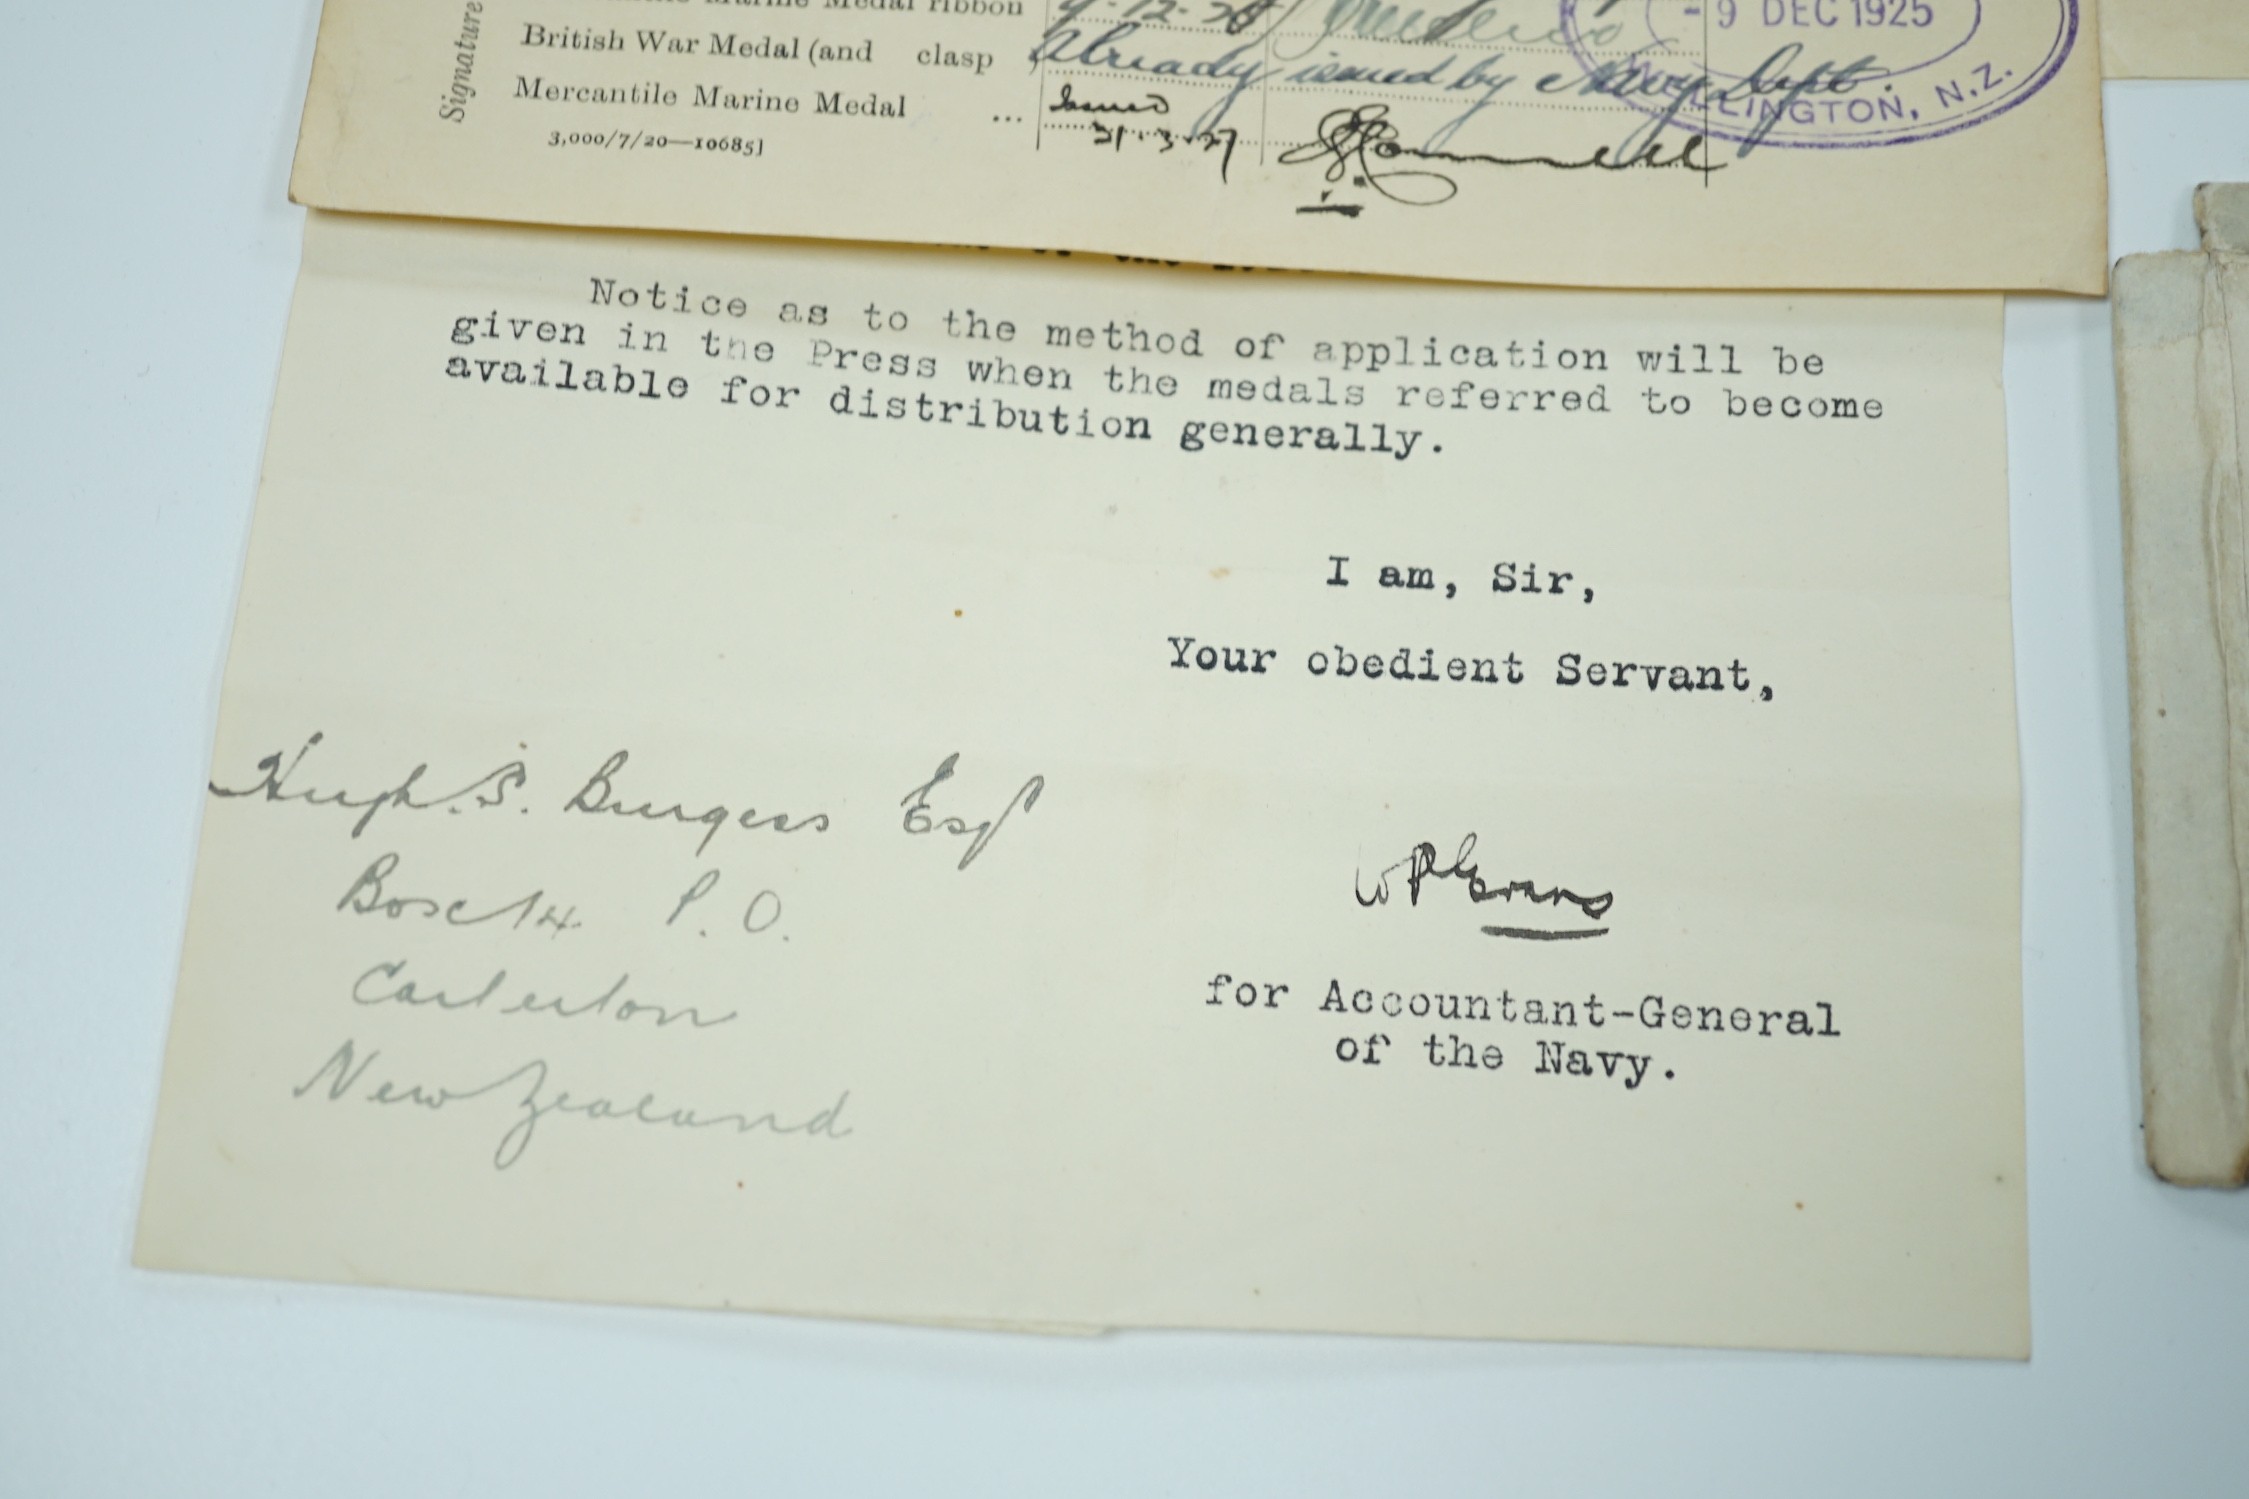 Signature
Marine Medal ribbon
- 9 DEC 1925
British War Medal (and clasp ) Already issued by Navy Dept.
WELLINGTON, N.Z.
Mercantile Marine Medal ... Issued
21.3.27
3,000/7/20—10685]
Notice as to the method of application will be
given in the Press when the medals referred to become
available for distribution generally.
I am, Sir,
Your obedient Servant,
Hugh. S. Burgess Esq
Box 14 P.O.
Carterton
New Zealand
W P Evans
for Accountant-General
of the Navy.